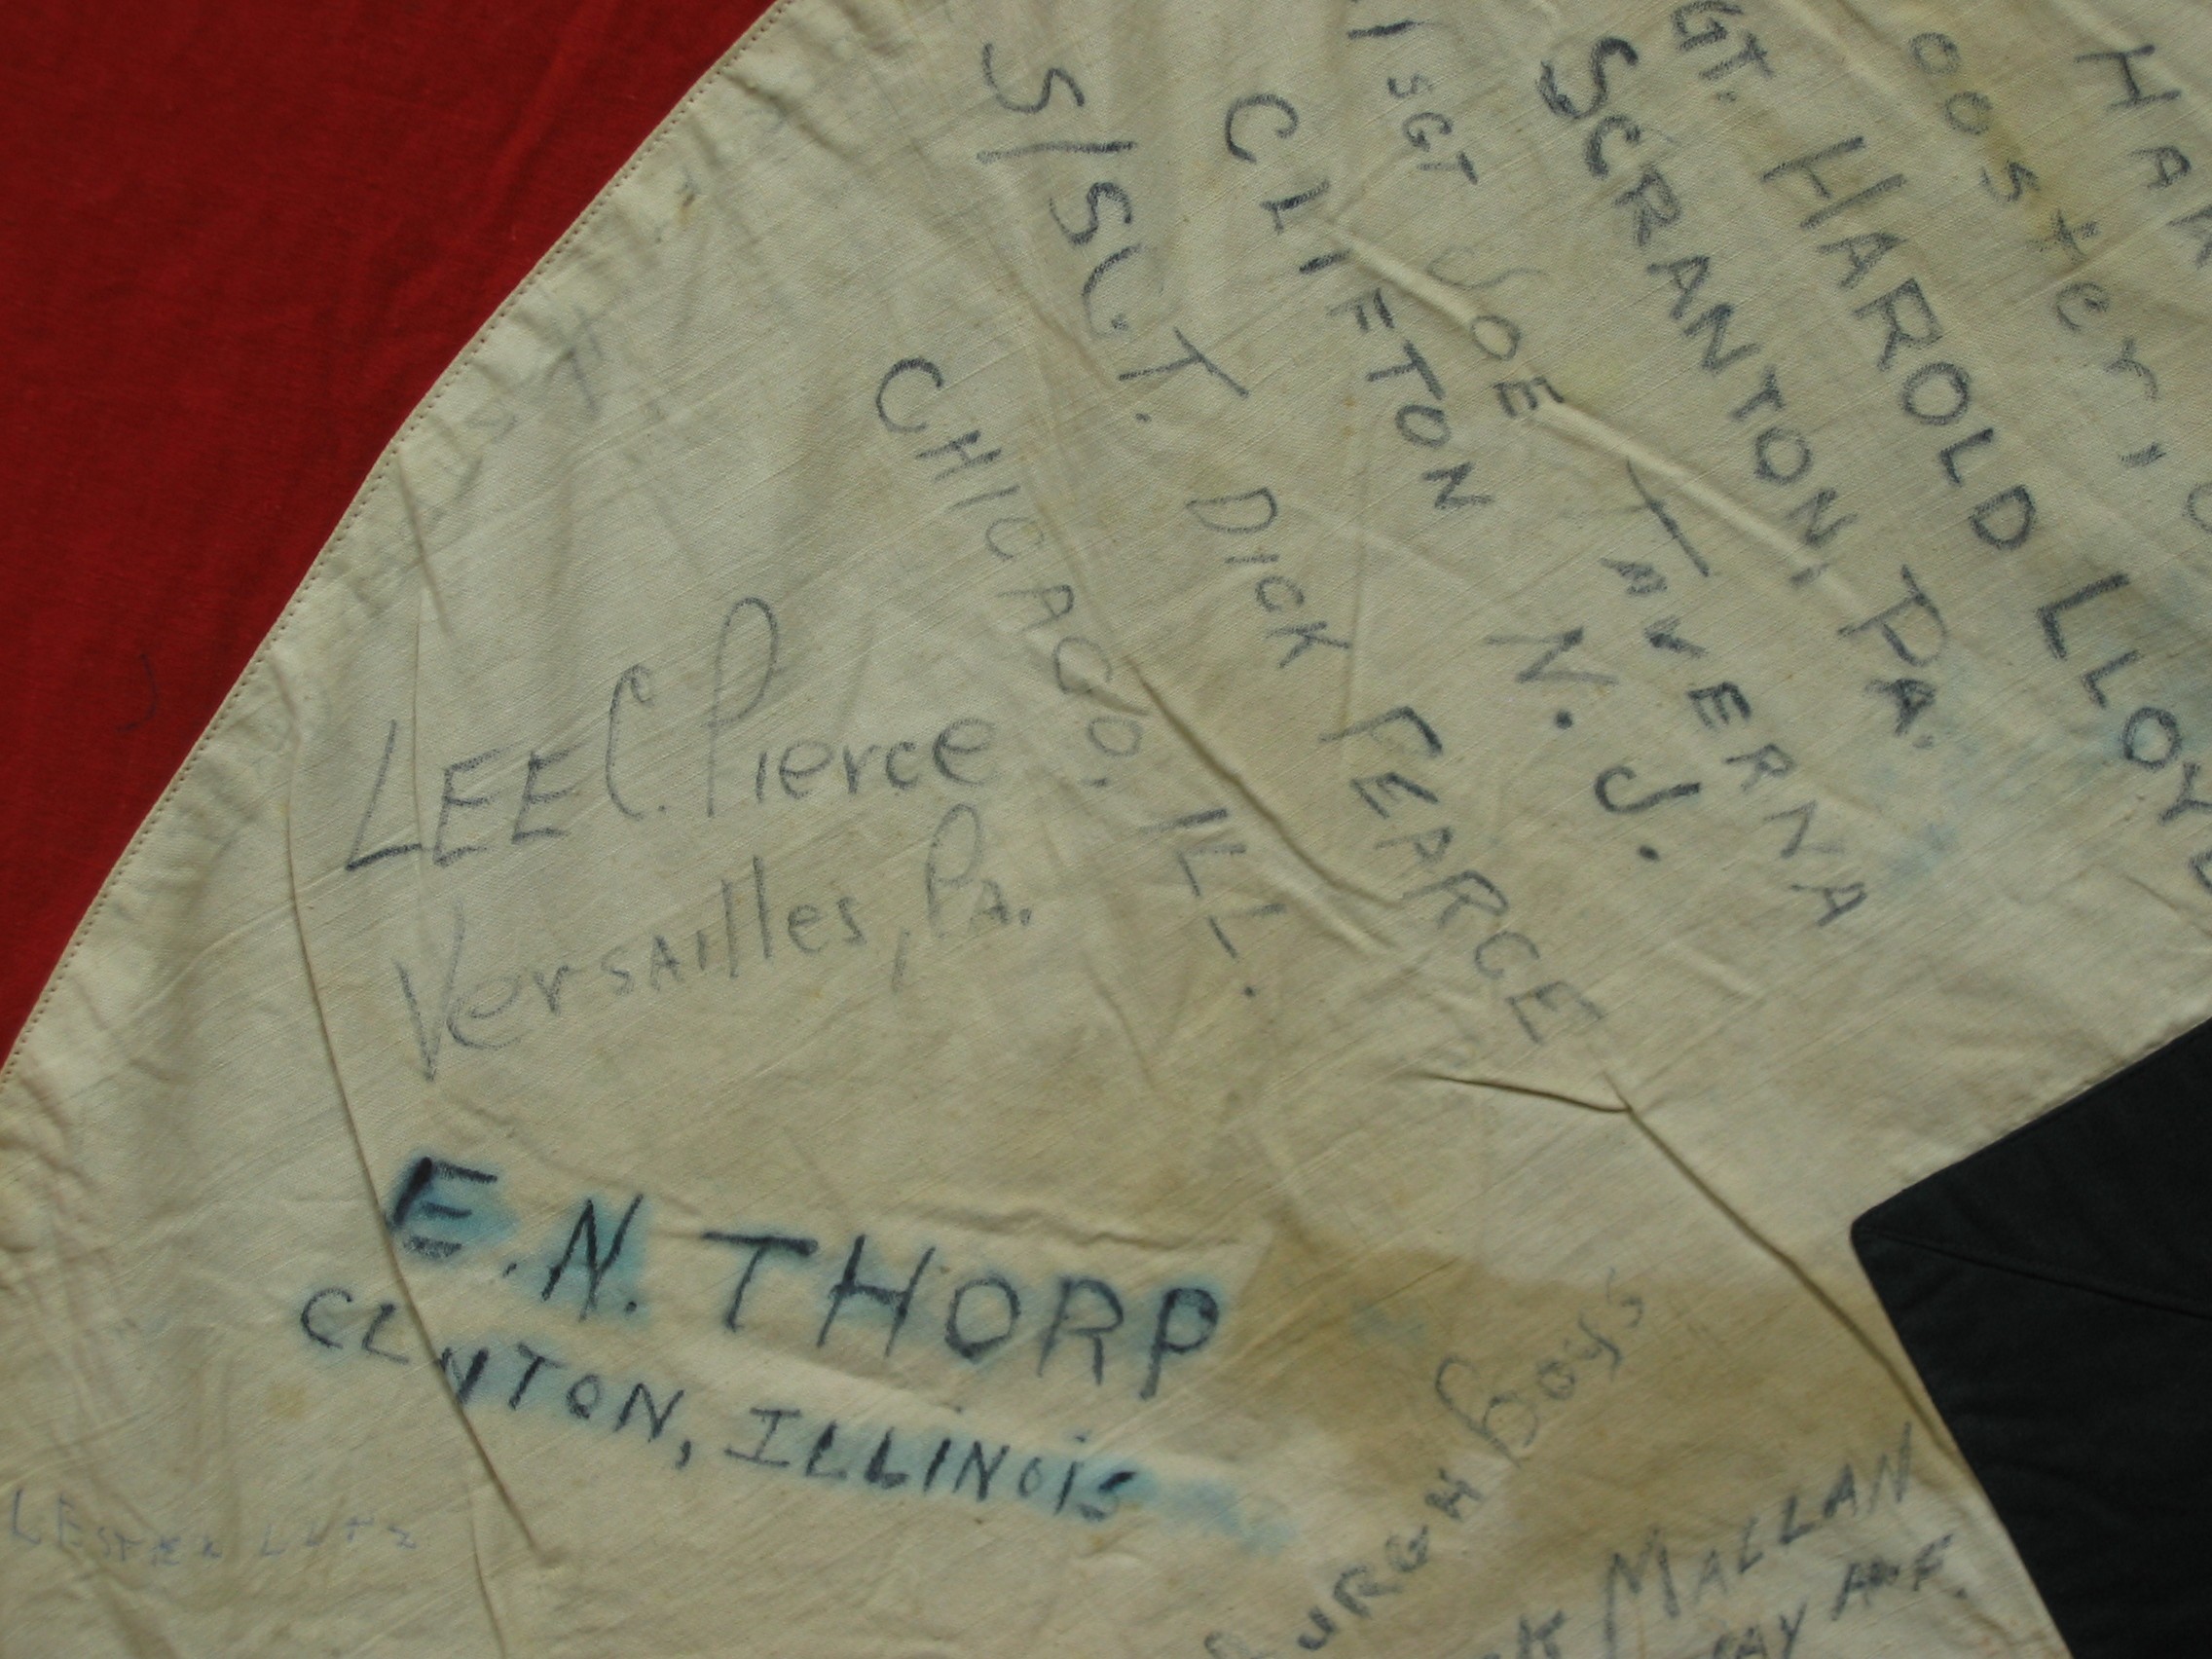 HAR
ooster, O
GT. HAROLD LLOYD
SCRANTON PA.
T/SGT JOE TAVERNA
CLIFTON N.J.
S/SGT. DICK FEARGE
CHICAGO, ILL.
LEE C. Pierce
Versailles, Pa.
E.N. THORP
CLNTON, ILLINOIS
LESTER LUTZ
URGH boys
K MALLAN
AY AVE.